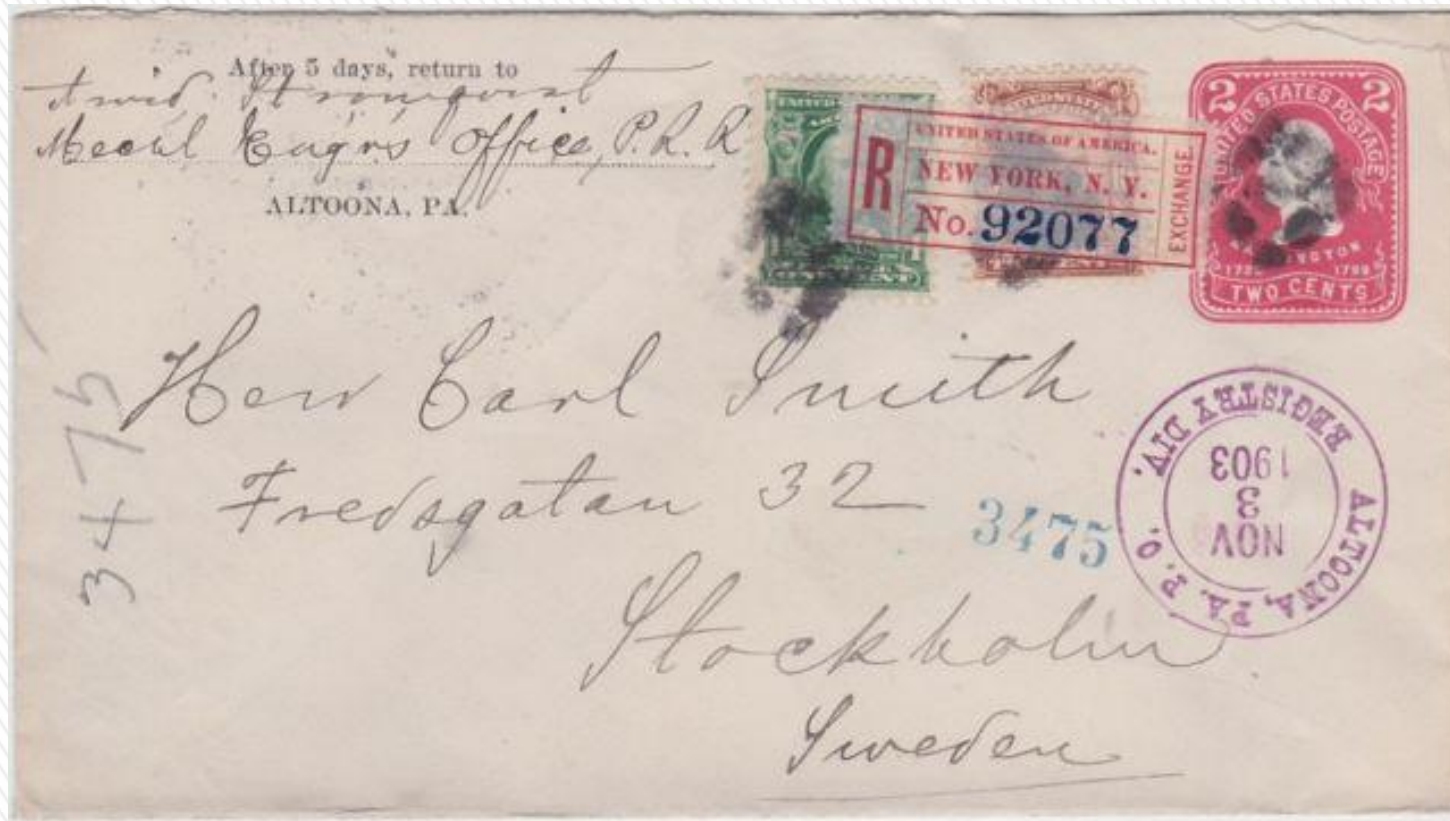 After 5 days, return to
Arvid Stromquist
Mechl Engrs Office, P.R.R
ALTOONA, PA.
UNITED STATES OF AMERICA.
R NEW YORK, N. Y.
No. 92077
EXCHANGE
ONE CENT
2 2
UNITED STATES POSTAGE
TWO CENTS
Herr Carl Smith
Fredsgatan 32
Stockholm
Sweden
3475
3475
ALTOONA, PA. P. O.
REGISTRY DIV.
NOV
3
1903